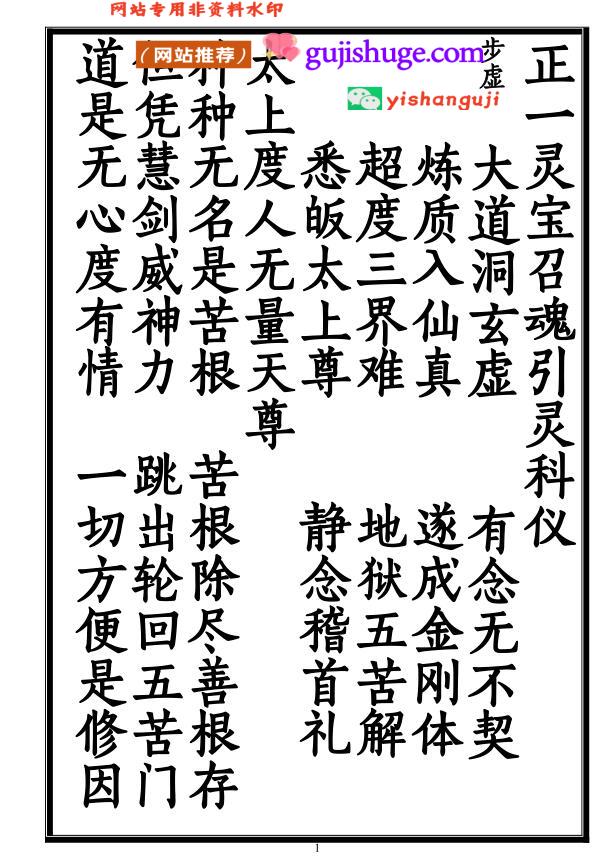 网站专用非资料水印
(网站推荐)
gujishuge.com
yishanguji
正一灵宝召魂引灵科仪
步虚
大道洞玄虚 有念无不契
炼质入仙真 遂成金刚体
超度三界难 地狱五苦解
悉皈太上尊 静念稽首礼
太上度人无量天尊
种种无名是苦根 苦根除尽善根存
但凭慧剑威神力 跳出轮回五苦门
道是无心度有情 一切方便是修因
1